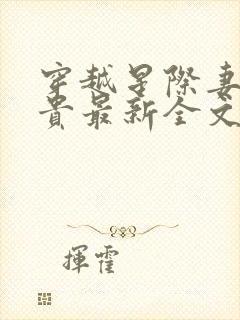 穿越星際妻
貴最新全文
揮霍